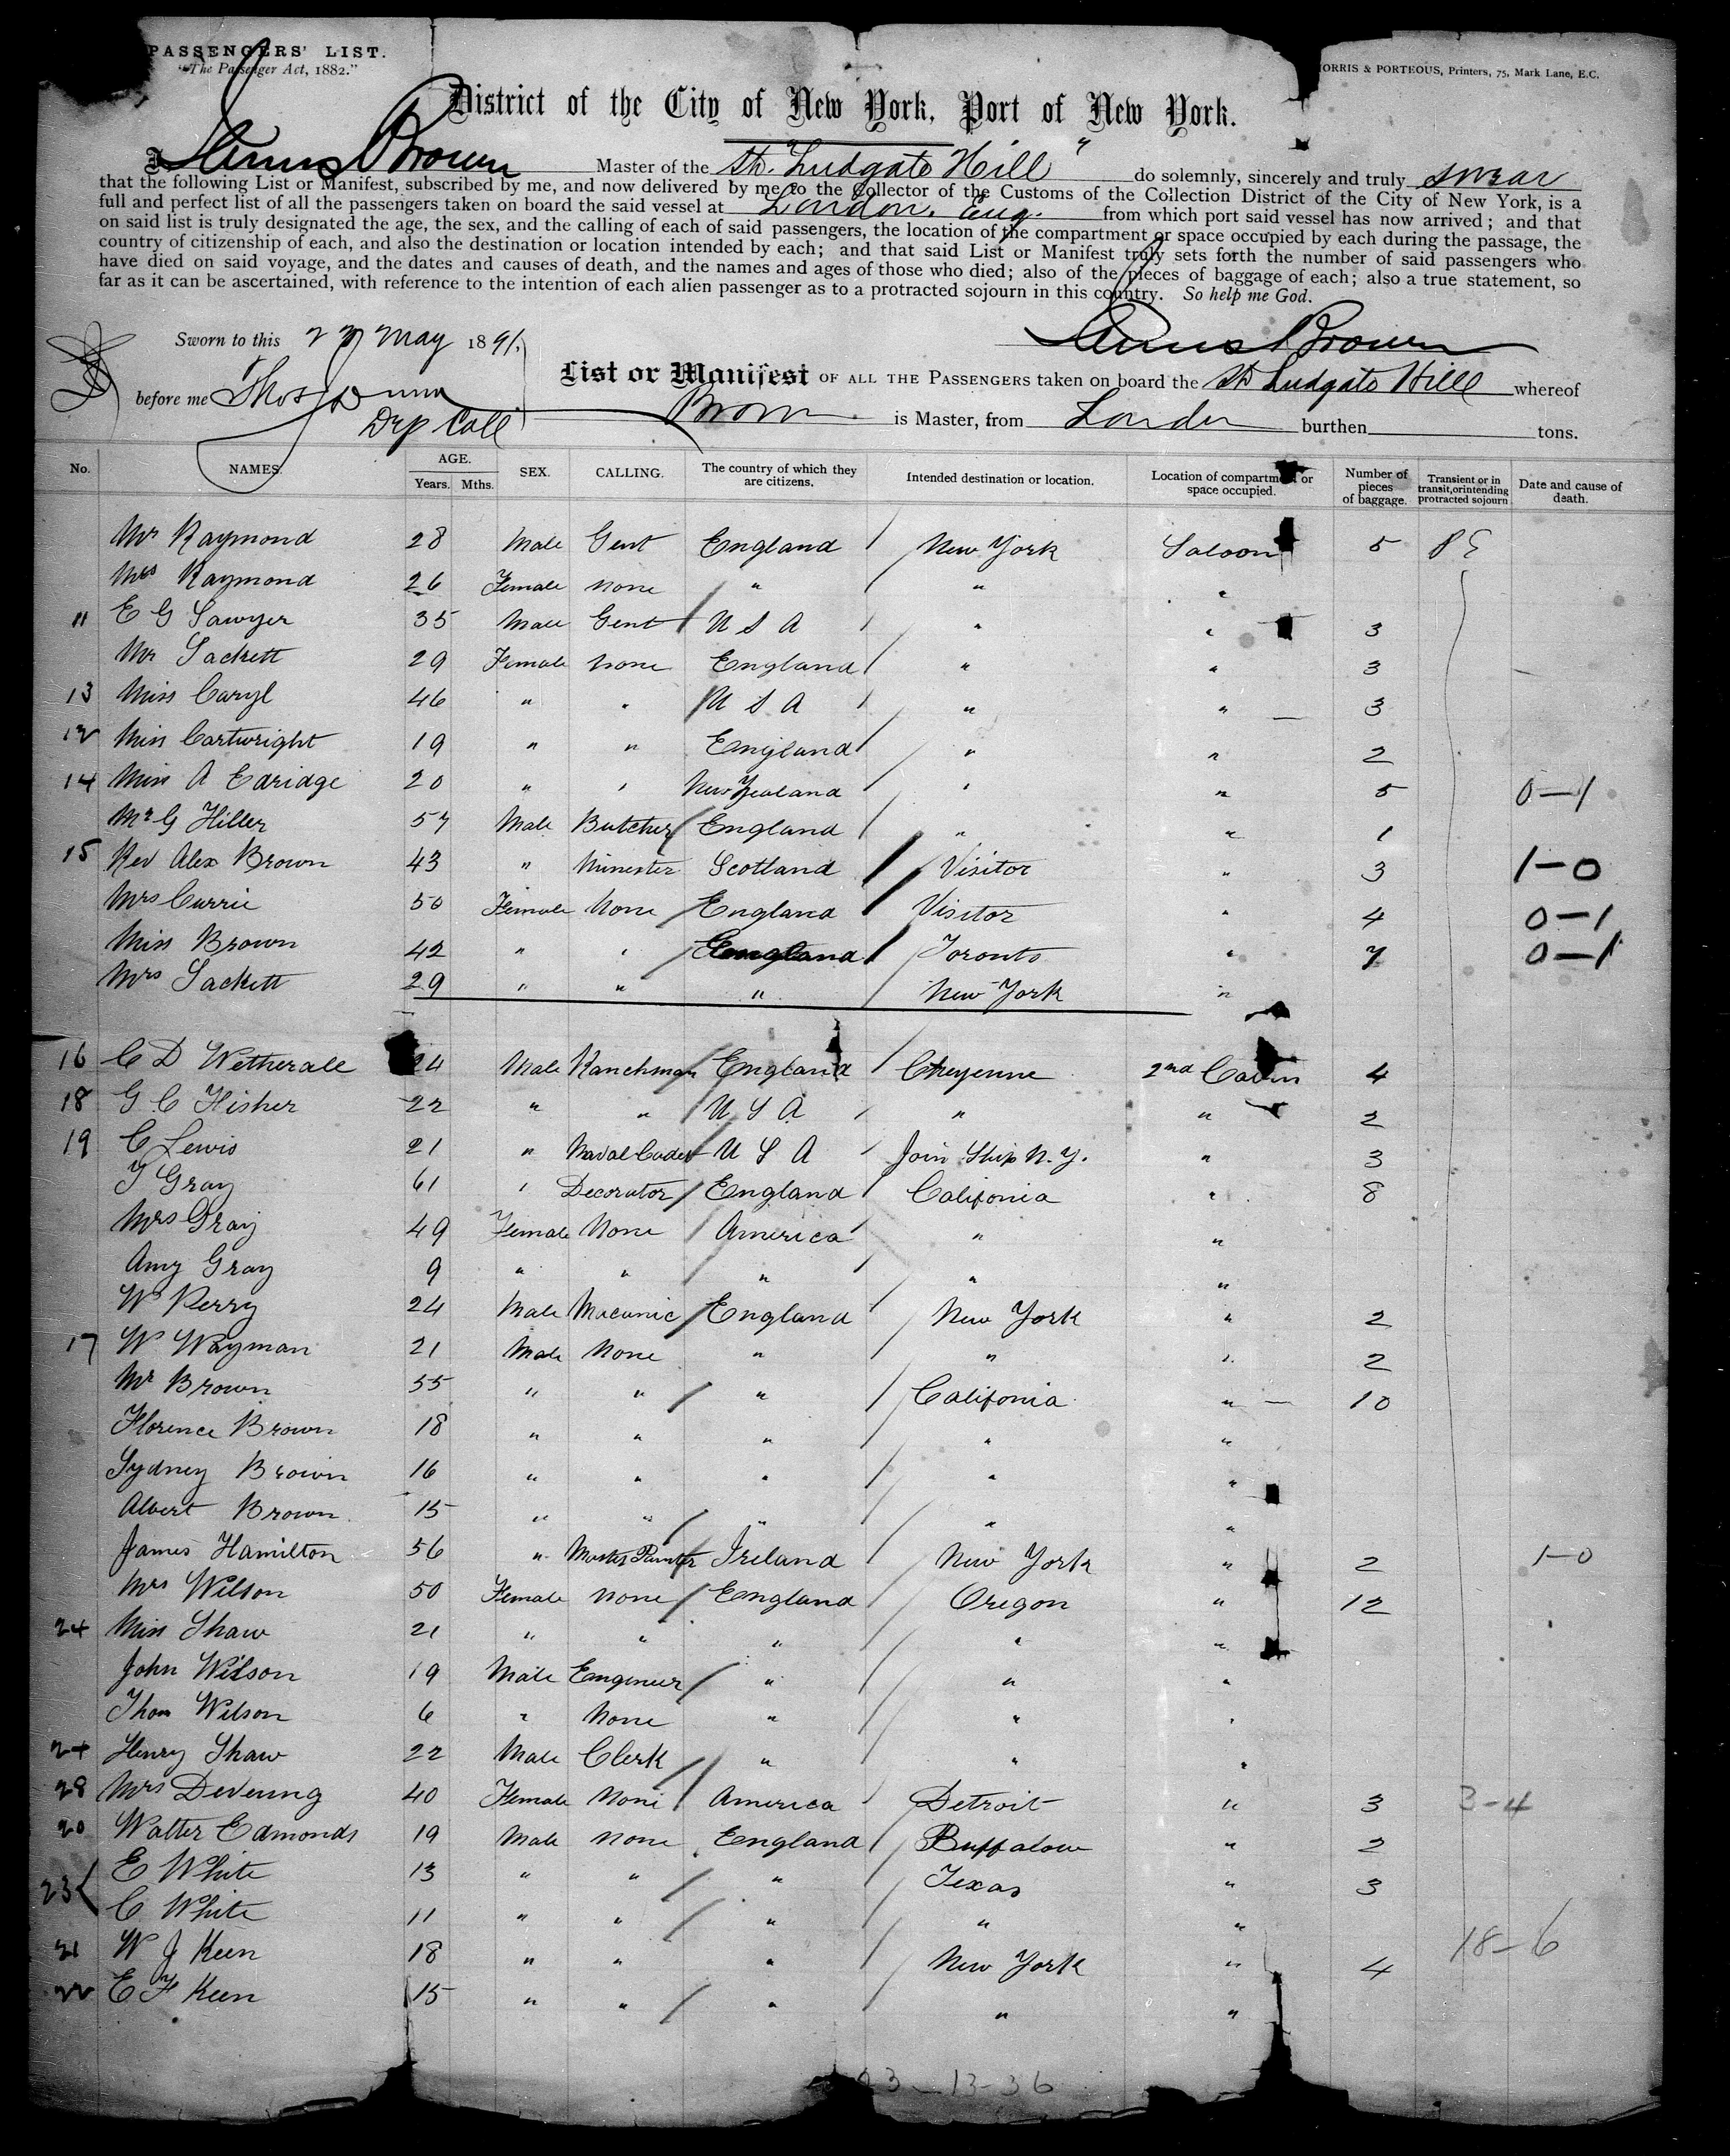 PASSENGERS' LIST.
"The Passenger Act, 1882."
MORRIS & PORTEOUS, Printers, 75, Mark Lane, E.C.
District of the City of New York, Port of New York.
I, Brown Master of the Ss. "Ludgate Hill" do solemnly, sincerely and truly swear
that the following List or Manifest, subscribed by me, and now delivered by me to the Collector of the Customs of the Collection District of the City of New York, is a
full and perfect list of all the passengers taken on board the said vessel at London, Eng. from which port said vessel has now arrived; and that
on said list is truly designated the age, the sex, and the calling of each of said passengers, the location of the compartment or space occupied by each during the passage, the
country of citizenship of each, and also the destination or location intended by each; and that said List or Manifest truly sets forth the number of said passengers who
have died on said voyage, and the dates and causes of death, and the names and ages of those who died; also of the pieces of baggage of each; also a true statement, so
far as it can be ascertained, with reference to the intention of each alien passenger as to a protracted sojourn in this country. So help me God.
Sworn to this May 1891. Brown
List or Manifest OF ALL THE PASSENGERS taken on board the Ss Ludgate Hill whereof
before me Thos Dunn
Brown is Master, from London burthen tons.
Dep Coll
No. NAMES. AGE. Years. Mths. SEX. CALLING. The country of which they are citizens. Intended destination or location. Location of compartment or space occupied. Number of pieces of baggage. Transient or in transit, or intending protracted sojourn Date and cause of death.
Mr Raymond 28 Male Gent England New York Saloon 5 PS
Mrs Raymond 26 Female none " " "
11 E G Sawyer 35 Male Gent U S A " " 3
Mr Sackett 29 Female none England " " 3
13 Miss Caryl 46 " " U S A " " 3
12 Miss Cartwright 19 " " England " " 2
14 Miss A Edridge 20 " " New Zealand " " 5 0-1
Mr G Hiller 57 Male Butcher England " " 1
15 Rev Alex Brown 43 " Minester Scotland Visitor " 3 1-0
Mrs Currie 50 Female None England Visitor " 4 0-1
Miss Brown 42 " " England Toronto " 7 0-1
Mrs Sackett 29 " " " New York "
16 C D Wetherall 24 Male Ranchman England Cheyenne 2nd Cabin 4
18 G C Fisher 22 " " U S A " " 2
19 C Lewis 21 " Naval Cadet U S A Join Ship N.Y. " 3
T Gray 61 " Decorator England Califonia " 8
Mrs Gray 49 Female None America " "
Amy Gray 9 " " " " "
W Perry 24 Male Macanic England New York " 2
17 W Wayman 21 Male None " " " 2
Mr Brown 55 " " " Califonia " 10
Florence Brown 18 " " " " "
Sydney Brown 16 " " " " "
Albert Brown 15 " " " " "
James Hamilton 56 " Master Painter Ireland New York " 2 1-0
Mrs Wilson 50 Female none England Oregon " 12
24 Miss Shaw 21 " " " " "
John Wilson 19 Male Engineer " " "
Thom Wilson 6 " None " " "
24 Henry Shaw 22 Male Clerk " " "
28 Mrs Deveung 40 Female None America Detroit " 3 3-4
20 Walter Edmonds 19 Male none England Buffalow " 2
23 { E White 13 " " " Texas " 3
C White 11 " " " " "
21 W J Keen 18 " " " New York " 4 18-6
22 E F Keen 15 " " " " "
13-36